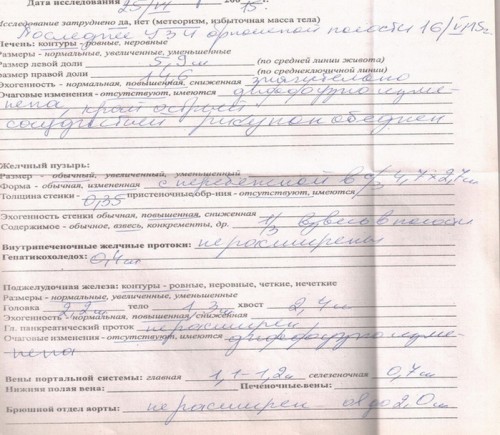 Дата исследования 25/VI 200 15 г.
Исследование затруднено да, нет (метеоризм, избыточная масса тела)
Последнее УЗИ брюшной полости 16/VI 15г.
Печень: контуры - ровные, неровные
Размеры - нормальные, увеличенные, уменьшенные
Размер левой доли 5,9 см (по средней линии живота)
размер правой доли 14,6 (по среднеключичной линии)
Эхогенность - нормальная, повышенная, сниженная значительно
Очаговые изменения - отсутствуют, имеются диффузно изме-
нена, край острый
сосудистый рисунок обеднен
Желчный пузырь:
Размер - обычный, увеличенный, уменьшенный
Форма - обычная, измененная с перетяжкой в с/3 4,7x2,7см
Толщина стенки - 0,35 пристеночные обр-ния - отсутствуют, имеются
Эхогенность стенки обычная, повышенная, сниженная
Содержимое - обычное, взвесь, конкременты, др. 1/3 взвесь в полости
Внутрипеченочные желчные протоки: не расширены
Гепатикохоледох: 0,4см
Поджелудочная железа: контуры - ровные, неровные, четкие, нечеткие
Размеры - нормальные, увеличенные, уменьшенные
Головка 2,2см тело 1,3см хвост 2,4см
Эхогенность - нормальная, повышенная, сниженная
Гл. панкреатический проток не расширен
Очаговые изменения - отсутствуют, имеются диффузно изме-
нена
Вены портальной системы: главная 1,1-1,2см селезеночная 0,7см
Нижняя полая вена: Печеночные вены:
Брюшной отдел аорты: не расширен d до 2,0см